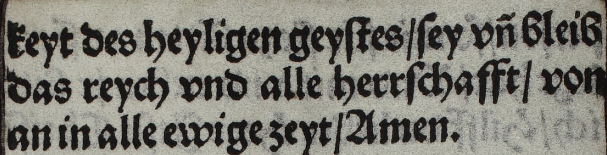 keyt des heyligen geyſtes/ſey vñ bleib
das reych vnd alle herrſchafft/ von
an in alle ewige zeyt/Amen.